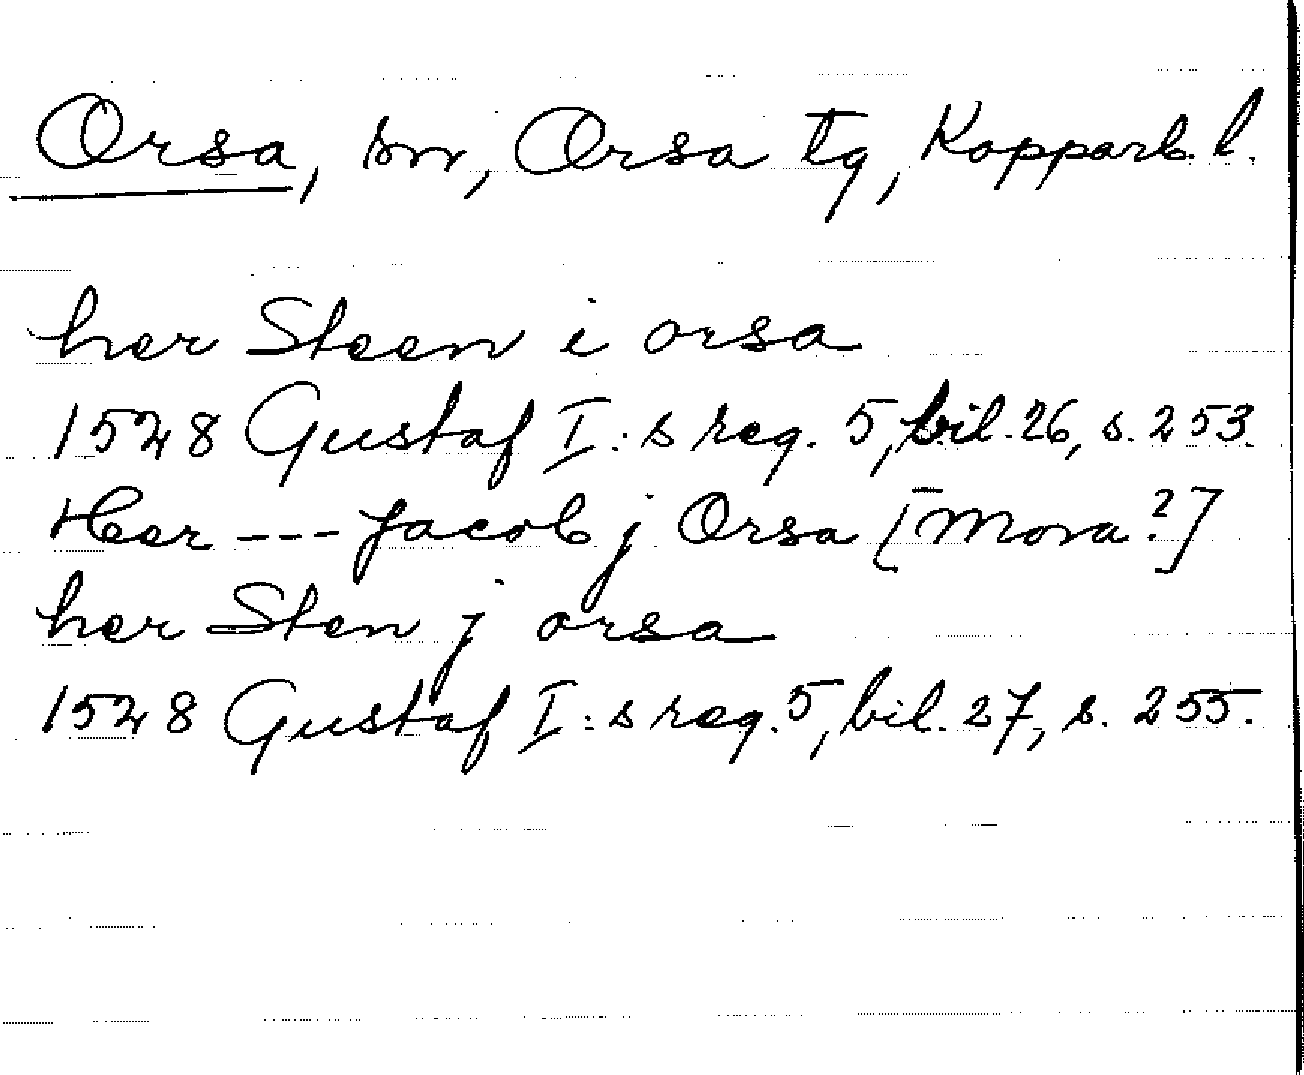 Orsa, sn, Orsa tg, Kopparb. l.
her Steen i orsa
1528 Gustaf I:s reg. 5, bil. 26, s. 253.
Her --- Jacob j Orsa [Mora?]
her Sten j orsa
1528 Gustaf I:s reg. 5, bil. 27, s. 255.